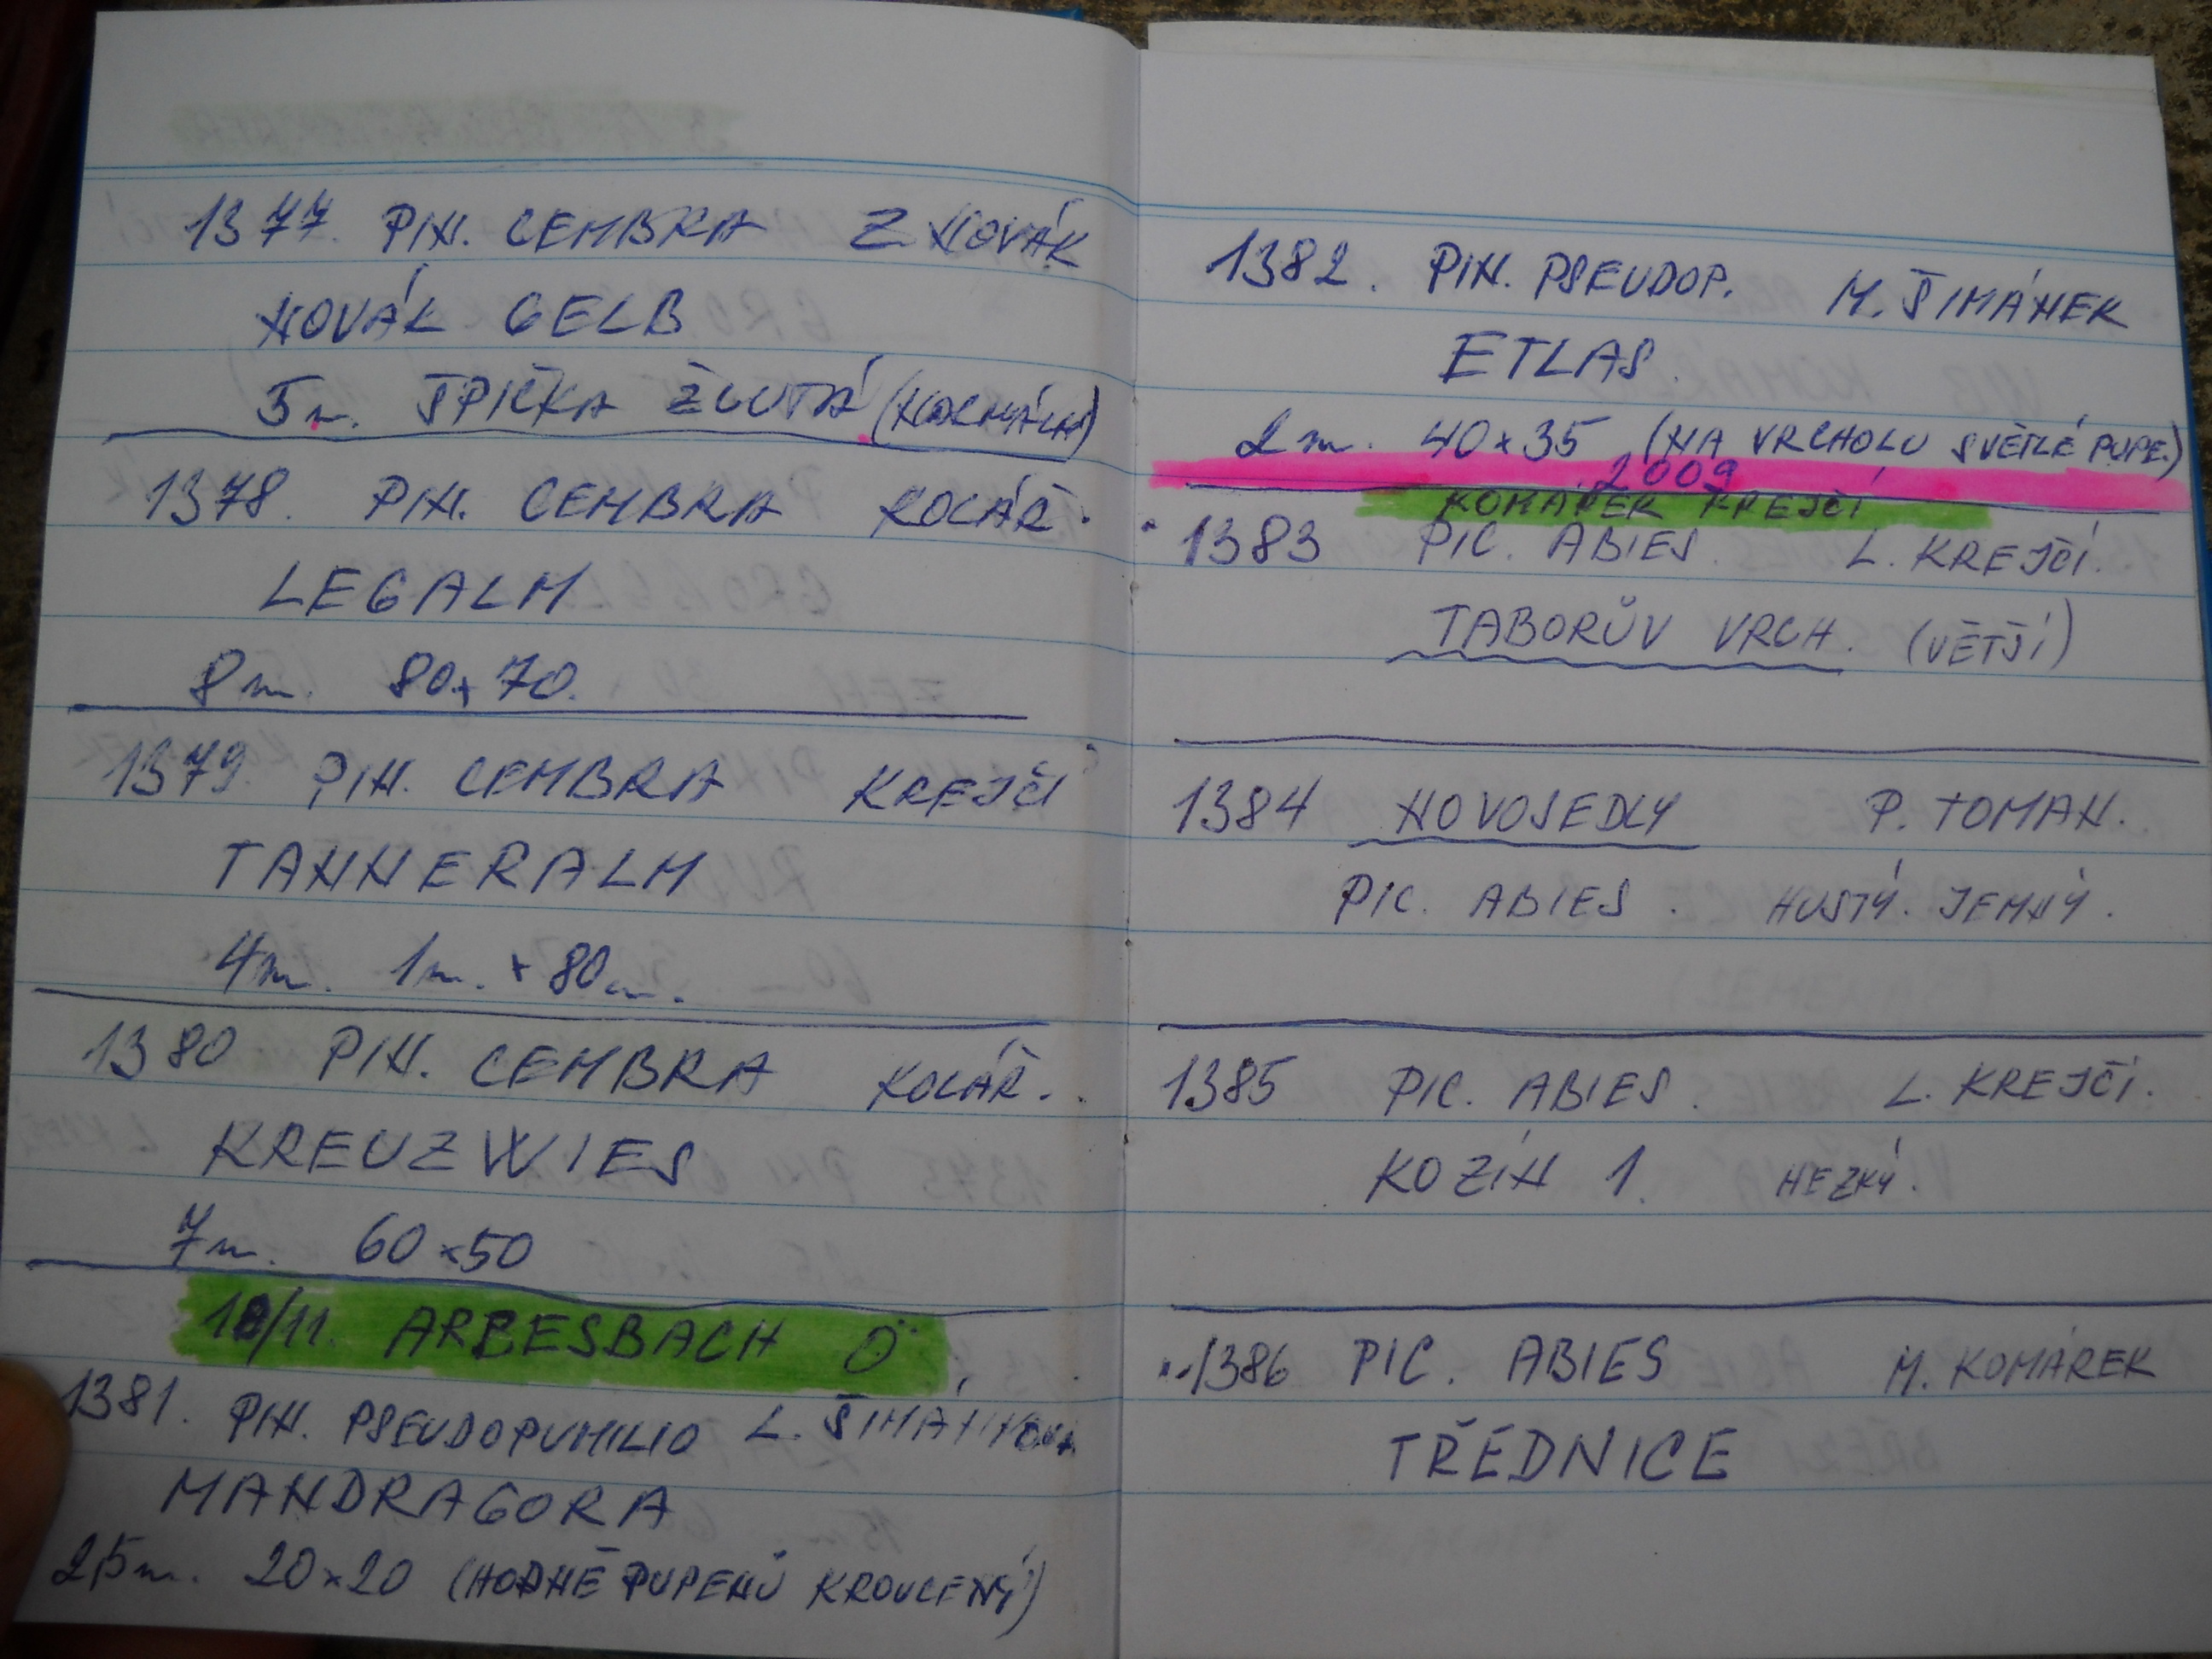 1377. PIN. CEMBRA Z NOVÁK
NOVÁK GELB
5m. ŠPIČKA ŽLUTÁ (NORMÁLNÍ)
1378. PIN. CEMBRA KOCÁŘ.
LEGALM
8m. 80x70.
1379. PIN. CEMBRA KREJČÍ
TANNERALM
4m. 1m. x 80cm.
1380 PIN. CEMBRA KOCÁŘ.
KREUZWIES
7m. 60x50
/11. ARBESBACH Ö
1381. PIN. PSEUDOPUMILIO L. ŠIMÁNKOVÁ
MANDRAGORA
2,5m. 20x20 (HODNĚ PUPENŮ KROUCENÝ)
1382. PIN. PSEUDOP. M. ŠIMÁNEK
ETLAS.
2m. 40x35 (NA VRCHOLU SVĚTLÉ PUPE.)
2009
KOMÁREK KREJČÍ
1383 PIC. ABIES. L. KREJČÍ.
TABORŮV VRCH. (VĚTŠÍ)
1384 NOVOSEDLY P. TOMAN.
PIC. ABIES. HUSTÝ. JEMNÝ.
1385 PIC. ABIES. L. KREJČÍ.
KOZÍN 1. HEZKÝ.
1386 PIC. ABIES M. KOMÁREK
TŘEDNICE